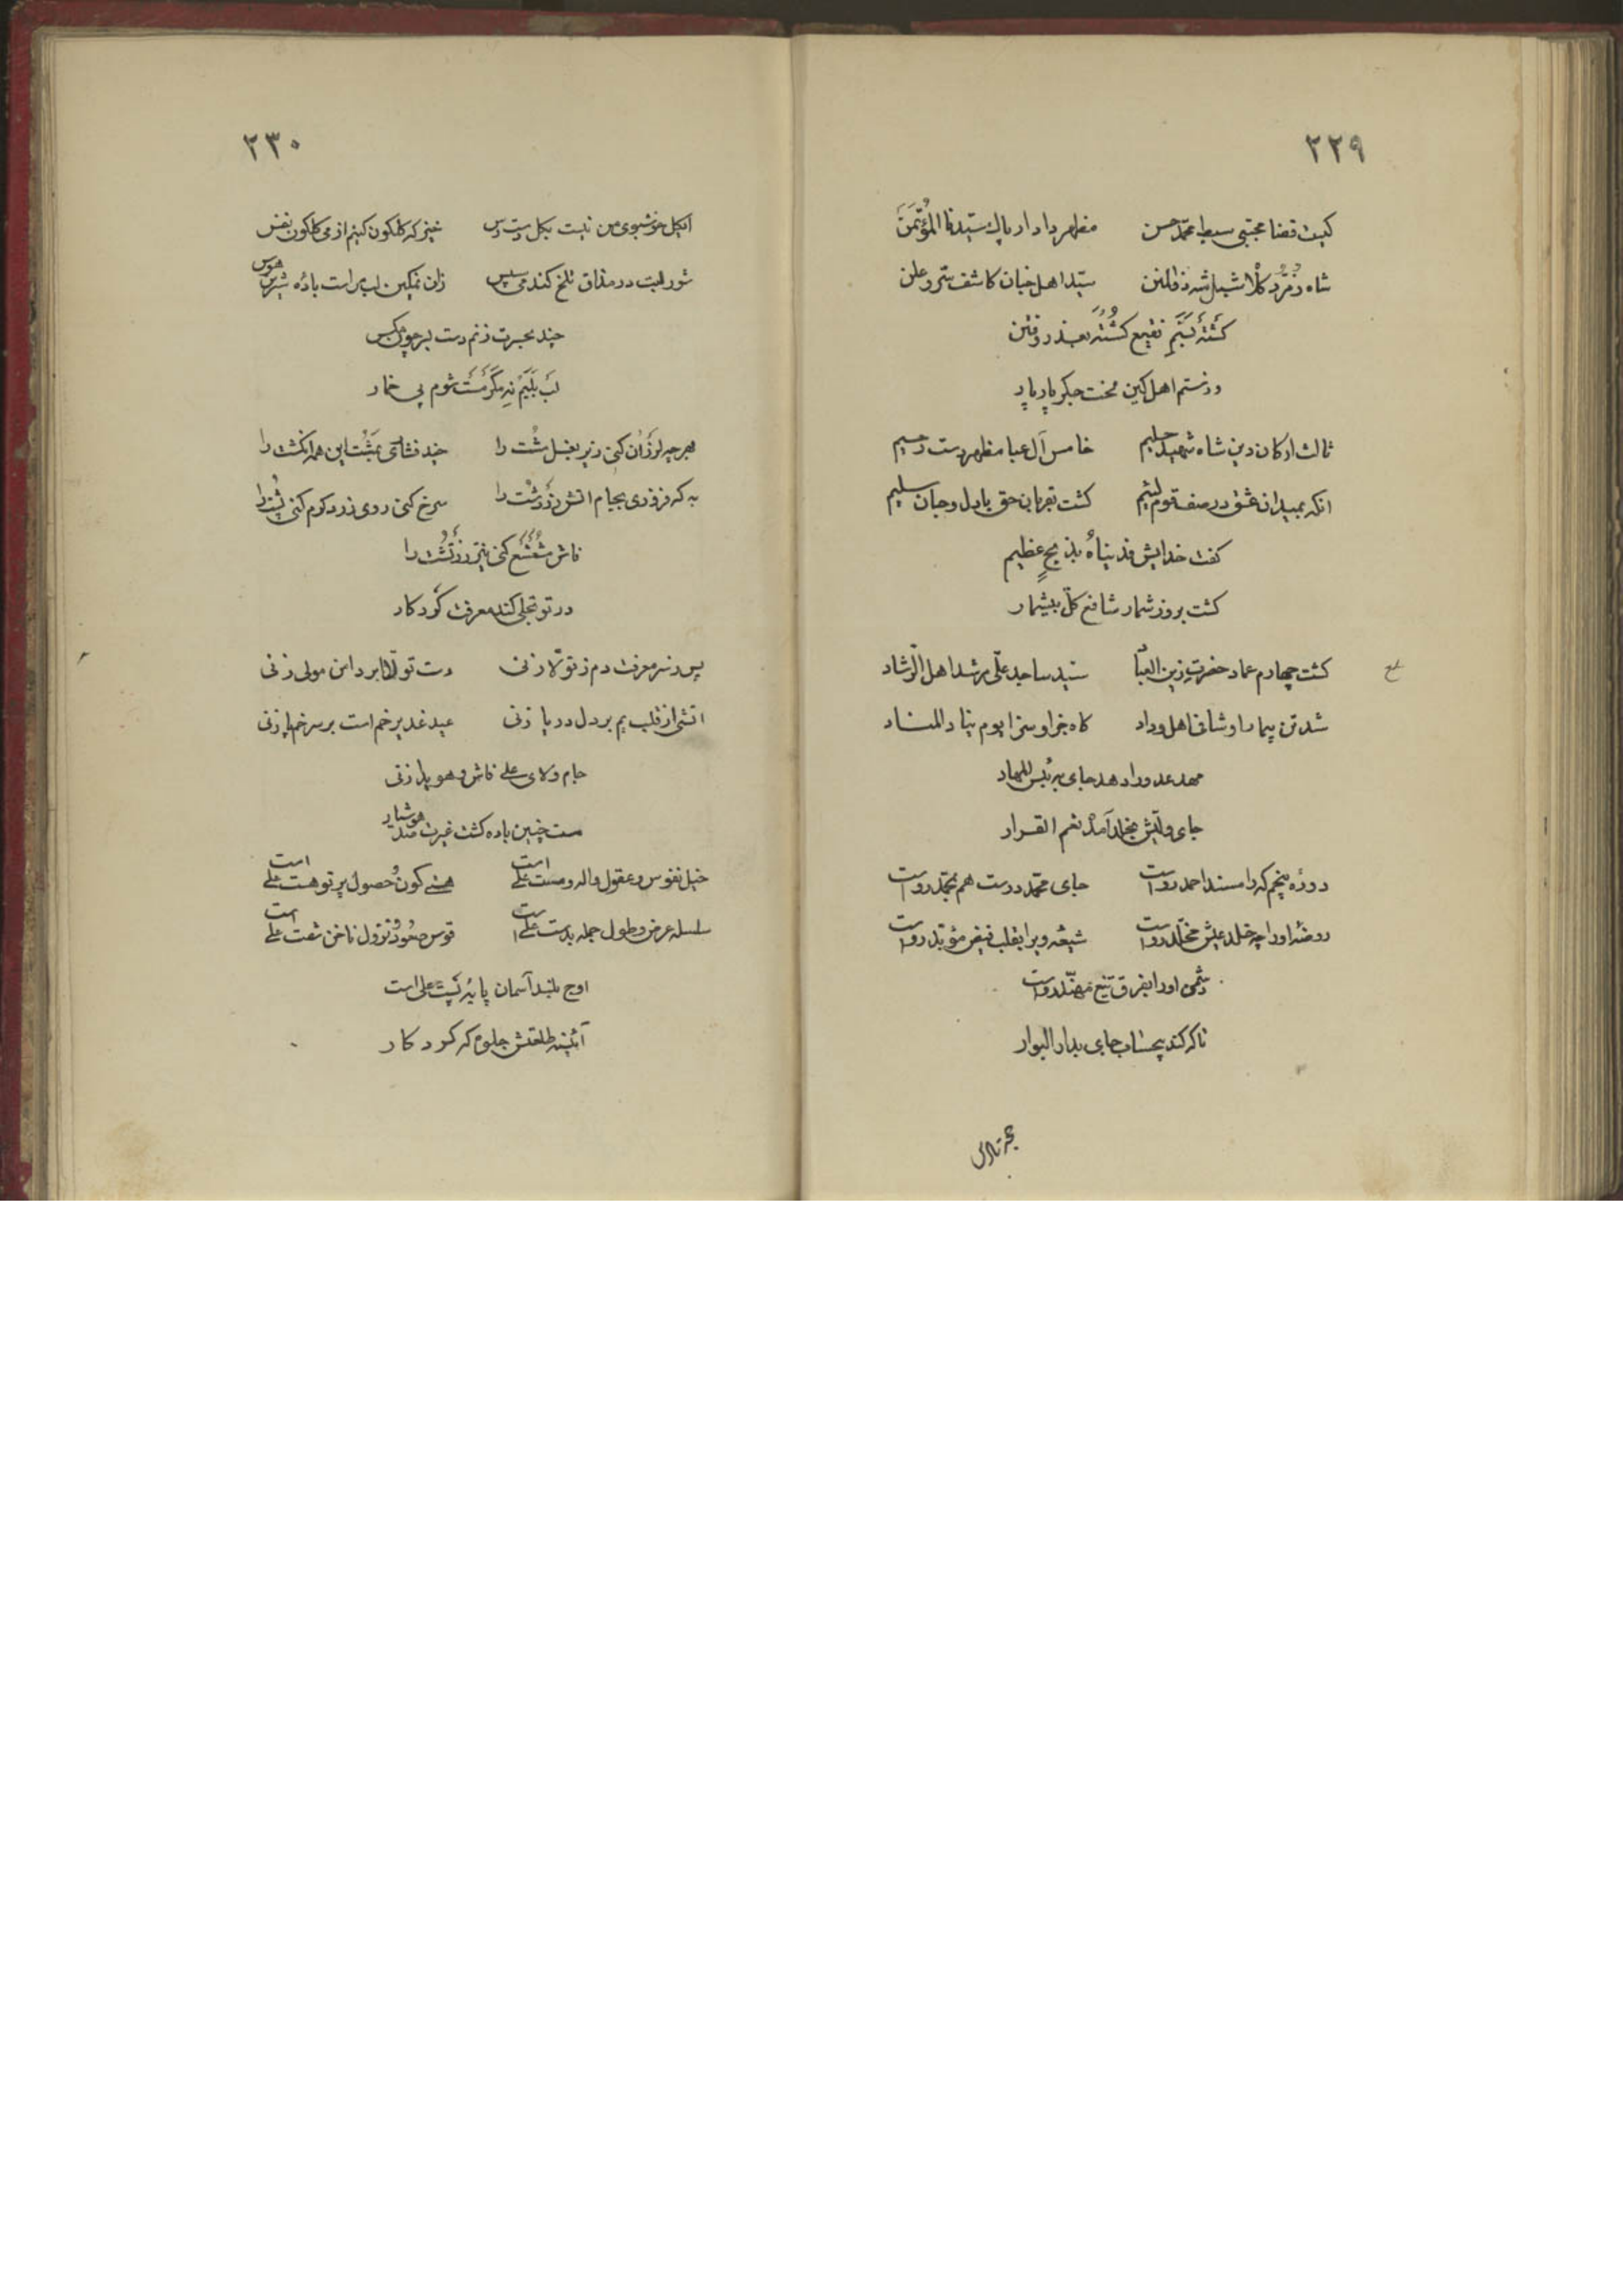 ۲۲۹
کیست قضا مجتبی سبط محمد حسن مظهر دادار پاک سیدنا المؤتمن
شاه زمرد کلاه شبل شه ذوالمنن سید اهل جنان کاشف سر و علن
کشته بسم نقیع کشته بعذر و فتن
وز ستم اهل کین لخت جگر پار پار
ثالث ارکان دین شاه شهید حلیم خامس آل عبا مظهر دست رحیم
انکه بمیدان عشق در صف قوم لئیم کشت بقربان حق با دل و جان سلیم
کفت خدایش فدیناه بذبح عظیم
کشت بروز شمار شافع کل بیشمار
کشت چهارم عماد حضرت زین العباد سید ساجد علی مرشد اهل الرشاد
شد تن بیمار او شافی اهل وداد کاه جزا و سزا یوم ینادالمناد
مهد عدو را دهد جای به بئس المهاد
جای ولیش بخلد آمد نعم القرار
دوره پنجم که را مسند احمد رواست جای محمد درست هم بمحمد رواست
روضه او را چه خلد عیش مخلد رواست شیعه ویرا بقلب فیض مؤبد رواست
دشمن او را بفرق تیغ مهند رواست
تا که کند بیحساب جای بدار البوار
۲۳۰
ایکل خوشبوی من نیست بکل دست رس خیز که کلکون کنیم از می کلکون نفس
شور لبت در مذاق تلخ کند می سپس زان نمکین لب مراست باده شیرین هوس
چند بحسرت زنم دست بسر چون مکس
لب بلبم نه مکر مست شوم بی خمار
هر چه لرزان کنی زیر بغل مشت را چند فشانی بمشت این همه انکشت را
به که فروزی بجام اتش زردشت را سرخ کنی روی زرد کرم کنی پشت را
فاش مشعشع کنی نیر زرتشت را
در تو تجلی کند معرفت کردکار
پس ز سر معرفت دم ز تولا زنی دست تولا بر دامن مولی زنی
اتشی از قلب یم بر دل دریا زنی عید غدیر خم است بر سر خم پا زنی
جام ولای علی فاش و هویدا زنی
مست چنین باده کشت غیرت صد هوشیار
خیل نفوس و عقول واله و مست علی است هستی کون و حصول پرتو هست علی است
سلسله عرض و طول جمله بدست علی است قوس صعود و نزول ناخن شصت علی است
اوج بلند آسمان پایه پست علی است
آئینه طلعتش جلوه که کردکار